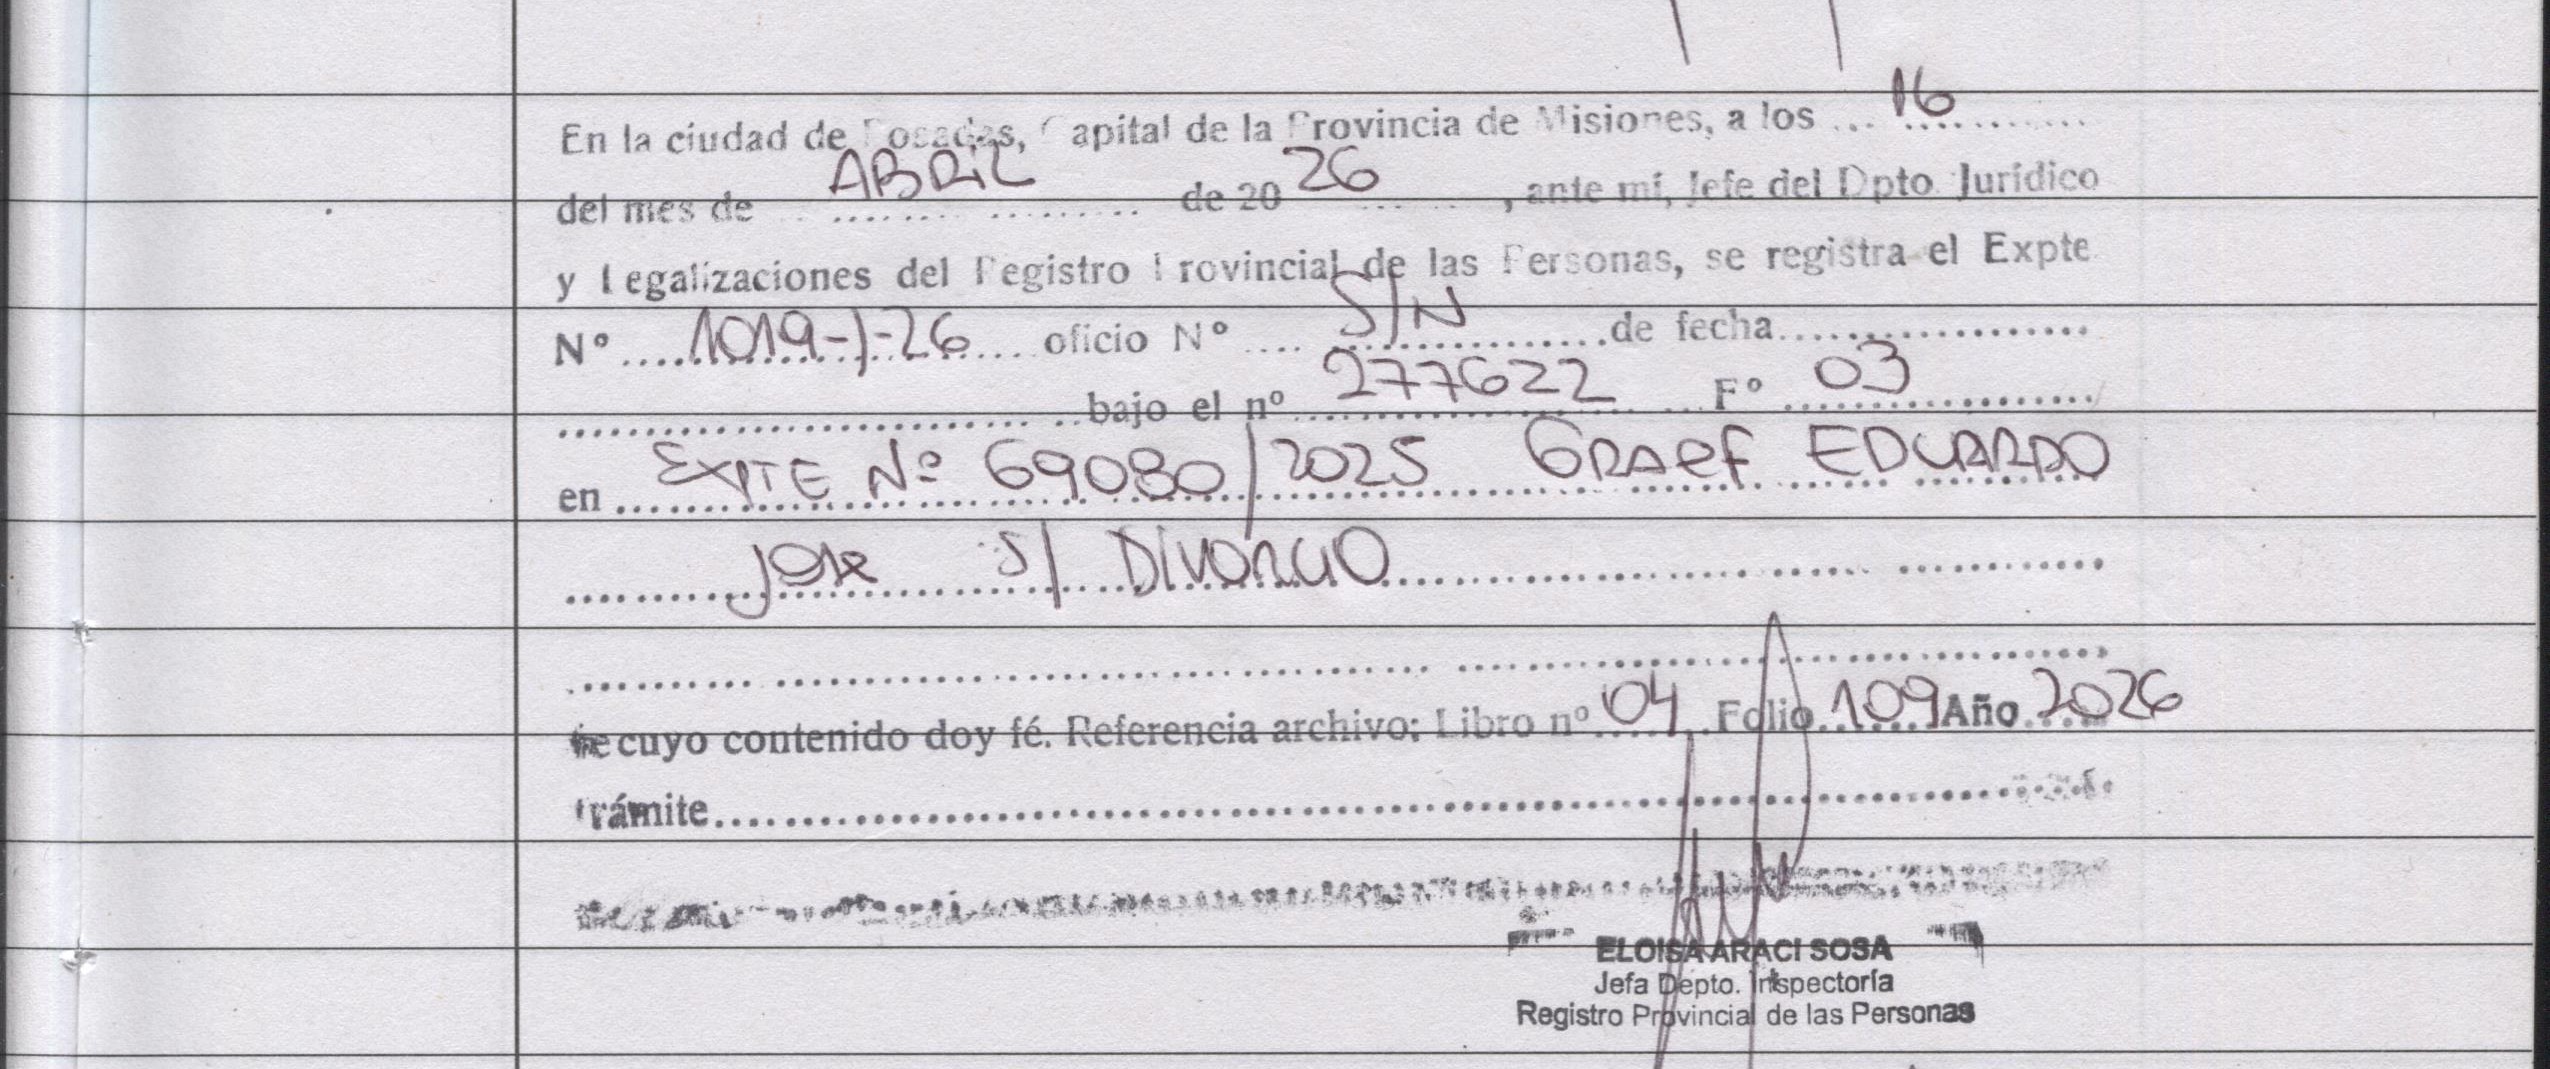 En la ciudad de Posadas, Capital de la Provincia de Misiones, a los ... 16 ............
del mes de ... ABRIL ................ de 20 26 ......, ante mí, Jefe del Dpto Jurídico
y Legalizaciones del Registro Provincial de las Personas, se registra el Expte
N° .... 1019-J-26 .... oficio N° .... S/N ................ de fecha....................
................................ bajo el nº .... 277622 .... F° .... 03 ....................
en .... EXPTE Nº 69080/2025 GRAEF EDUARDO
........ Jose S/ DIVORCIO ................................
................................................................
de cuyo contenido doy fé. Referencia archivo: Libro nº 04 Folio 109 Año 2026
trámite................................................................
ELOISA ARACI SOSA
Jefa Depto. Inspectoría
Registro Provincial de las Personas